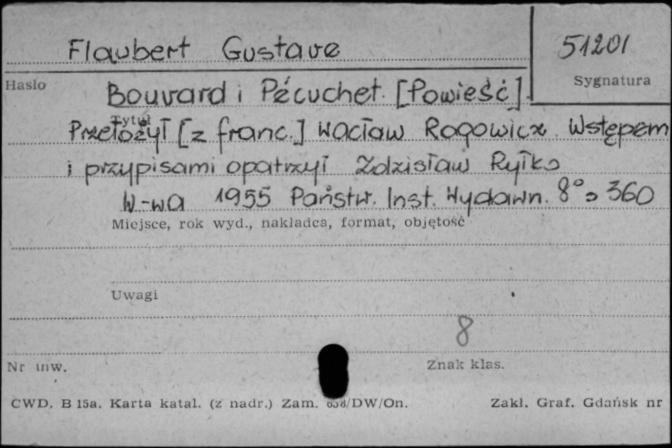 Flaubert Gustave
51201
Hasło
Sygnatura
Bouvard i Pécuchet. [Powieść]
Tytuł
Przełożył [z franc.] Wacław Rogowicz. Wstępem
i przypisami opatrzył Zdzisław Ryłko
W-wa 1955 Państw. Inst. Wydawn. 8° s 360
Miejsce, rok wyd., nakładca, format, objętość
Uwagi
8
Nr inw.
Znak klas.
CWD. B 15a. Karta katal. (z nadr.) Zam. /DW/On.
Zakł. Graf. Gdańsk nr